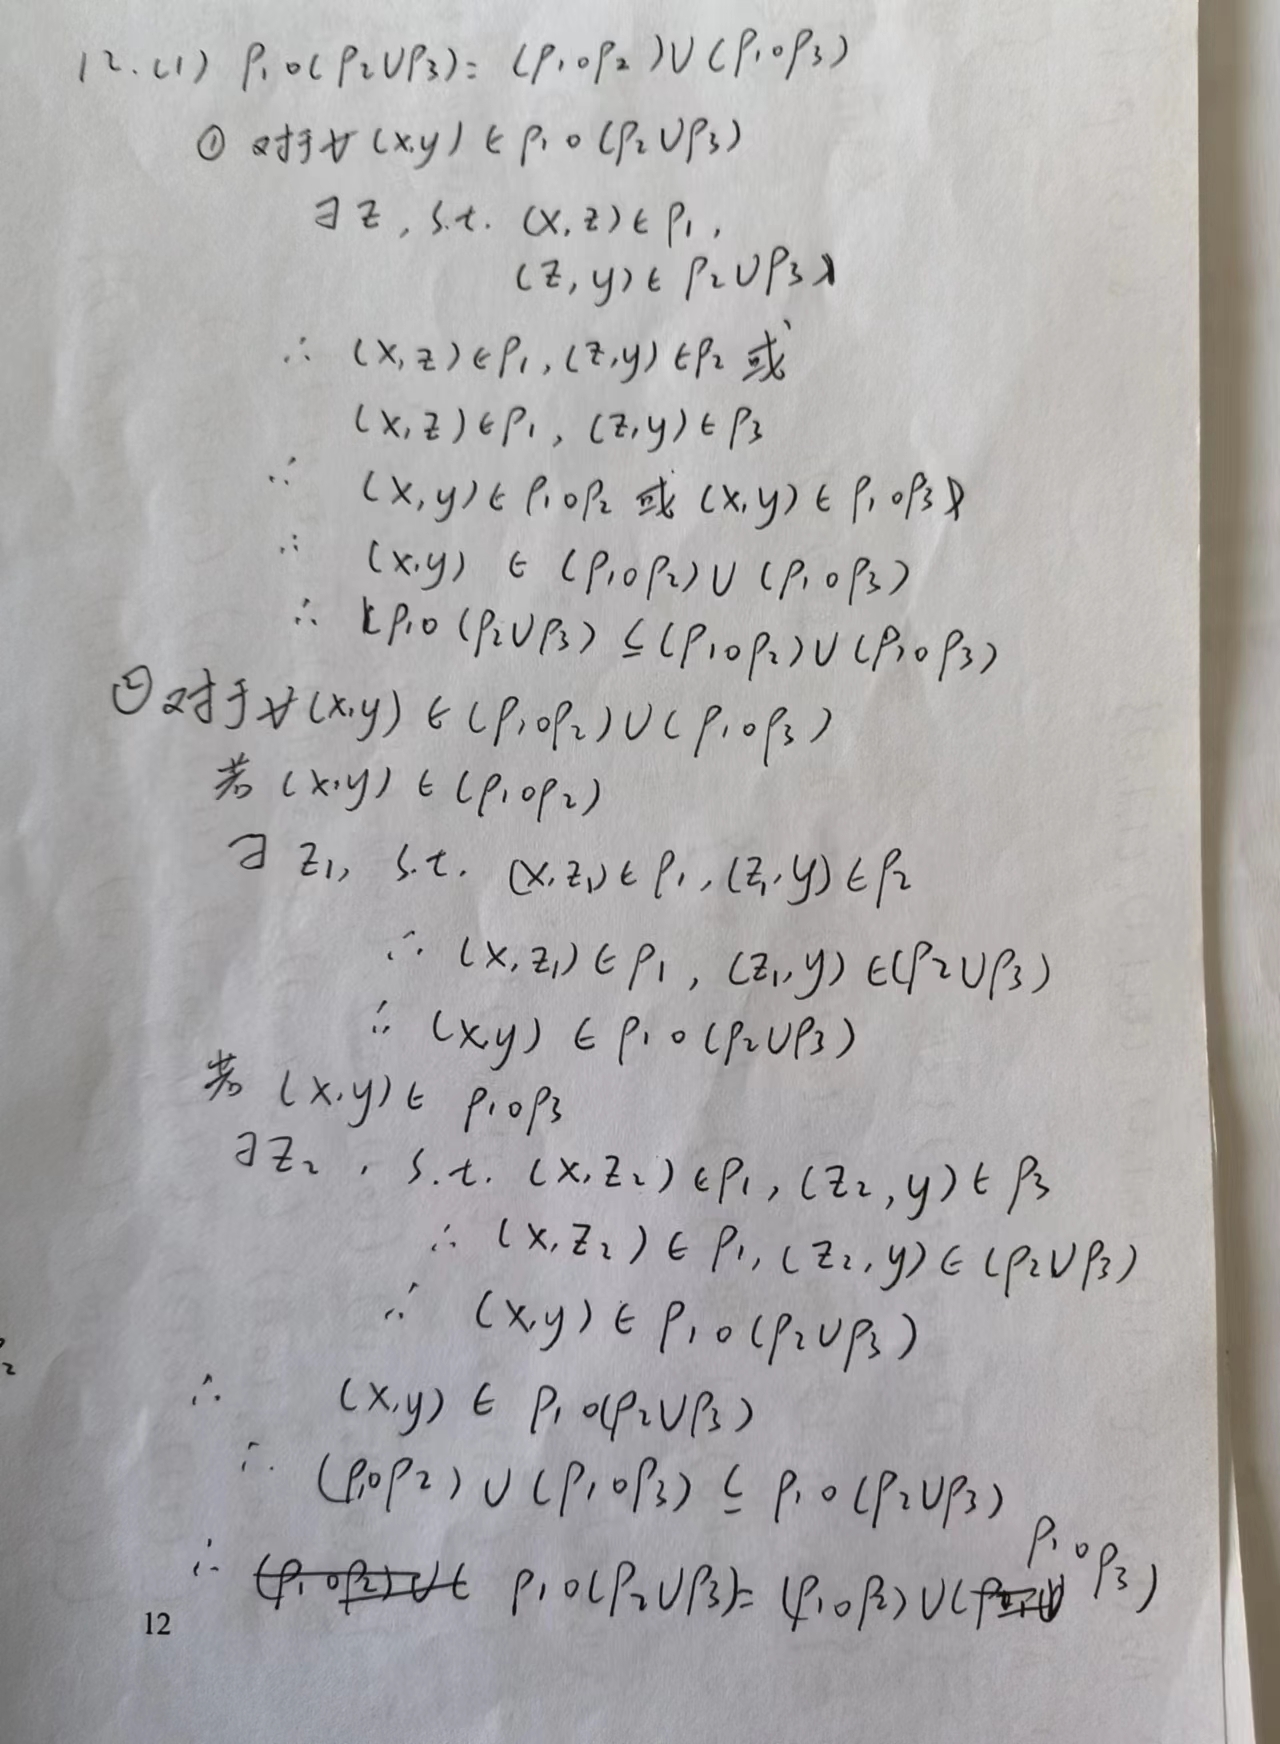 12.(1) ρ₁∘(ρ₂∪ρ₃)= (ρ₁∘ρ₂)∪(ρ₁∘ρ₃)
① 对于∀(x,y)∈ρ₁∘(ρ₂∪ρ₃)
∃z, s.t. (x,z)∈ρ₁,
(z,y)∈ρ₂∪ρ₃
∴ (x,z)∈ρ₁,(z,y)∈ρ₂ 或
(x,z)∈ρ₁, (z,y)∈ρ₃
∴ (x,y)∈ρ₁∘ρ₂ 或 (x,y)∈ρ₁∘ρ₃
∴ (x,y) ∈ (ρ₁∘ρ₂)∪(ρ₁∘ρ₃)
∴ ρ₁∘(ρ₂∪ρ₃)⊆(ρ₁∘ρ₂)∪(ρ₁∘ρ₃)
② 对于∀(x,y)∈(ρ₁∘ρ₂)∪(ρ₁∘ρ₃)
若(x,y)∈(ρ₁∘ρ₂)
∃z₁, s.t. (x,z₁)∈ρ₁,(z₁,y)∈ρ₂
∴ (x,z₁)∈ρ₁, (z₁,y)∈(ρ₂∪ρ₃)
∴ (x,y)∈ρ₁∘(ρ₂∪ρ₃)
若(x,y)∈ρ₁∘ρ₃
∃z₂, s.t. (x,z₂)∈ρ₁,(z₂,y)∈ρ₃
∴ (x,z₂)∈ρ₁,(z₂,y)∈(ρ₂∪ρ₃)
∴ (x,y)∈ρ₁∘(ρ₂∪ρ₃)
∴ (x,y)∈ρ₁∘(ρ₂∪ρ₃)
∴ (ρ₁∘ρ₂)∪(ρ₁∘ρ₃)⊆ρ₁∘(ρ₂∪ρ₃)
∴ ρ₁∘(ρ₂∪ρ₃)=(ρ₁∘ρ₂)∪(ρ₁∘ρ₃)
12